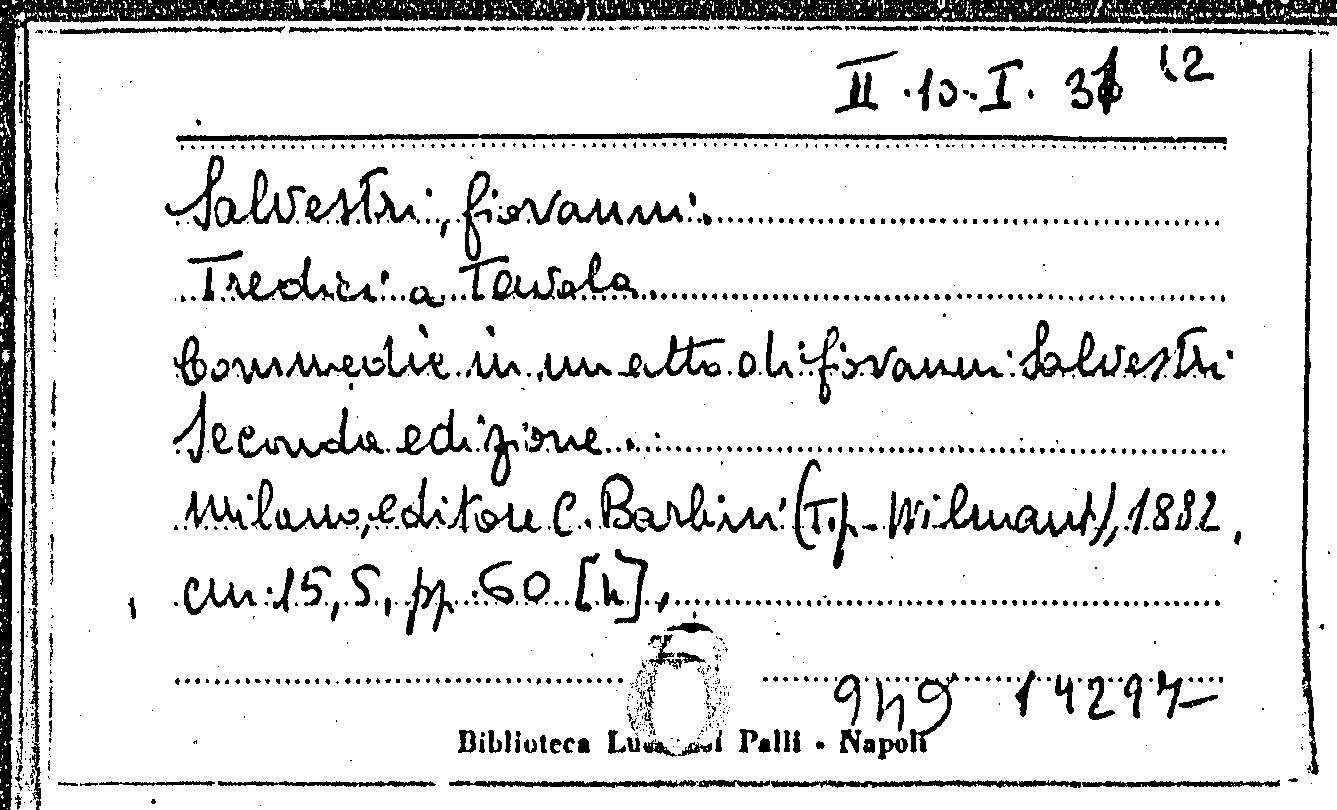 II.10.I. 31 12
Salvestri, Giovanni.
Tredici a Tavola.
Commedia in un atto di Giovanni Salvestri
Seconda edizione..
Milano, editore C. Barbini (Tip. Wilmant), 1882,
cm. 15,5, pp. 60 [4].
949 14297
Biblioteca Palli - Napoli